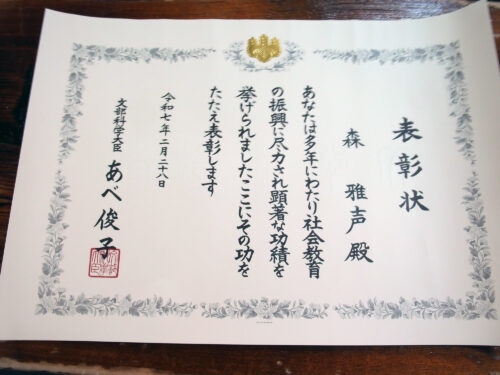 表彰状
森 雅声 殿
あなたは多年にわたり社会教育
の振興に尽力され顕著な功績を
挙げられましたここにその功を
たたえ表彰します
令和七年二月二十八日
文部科学大臣 あべ 俊子